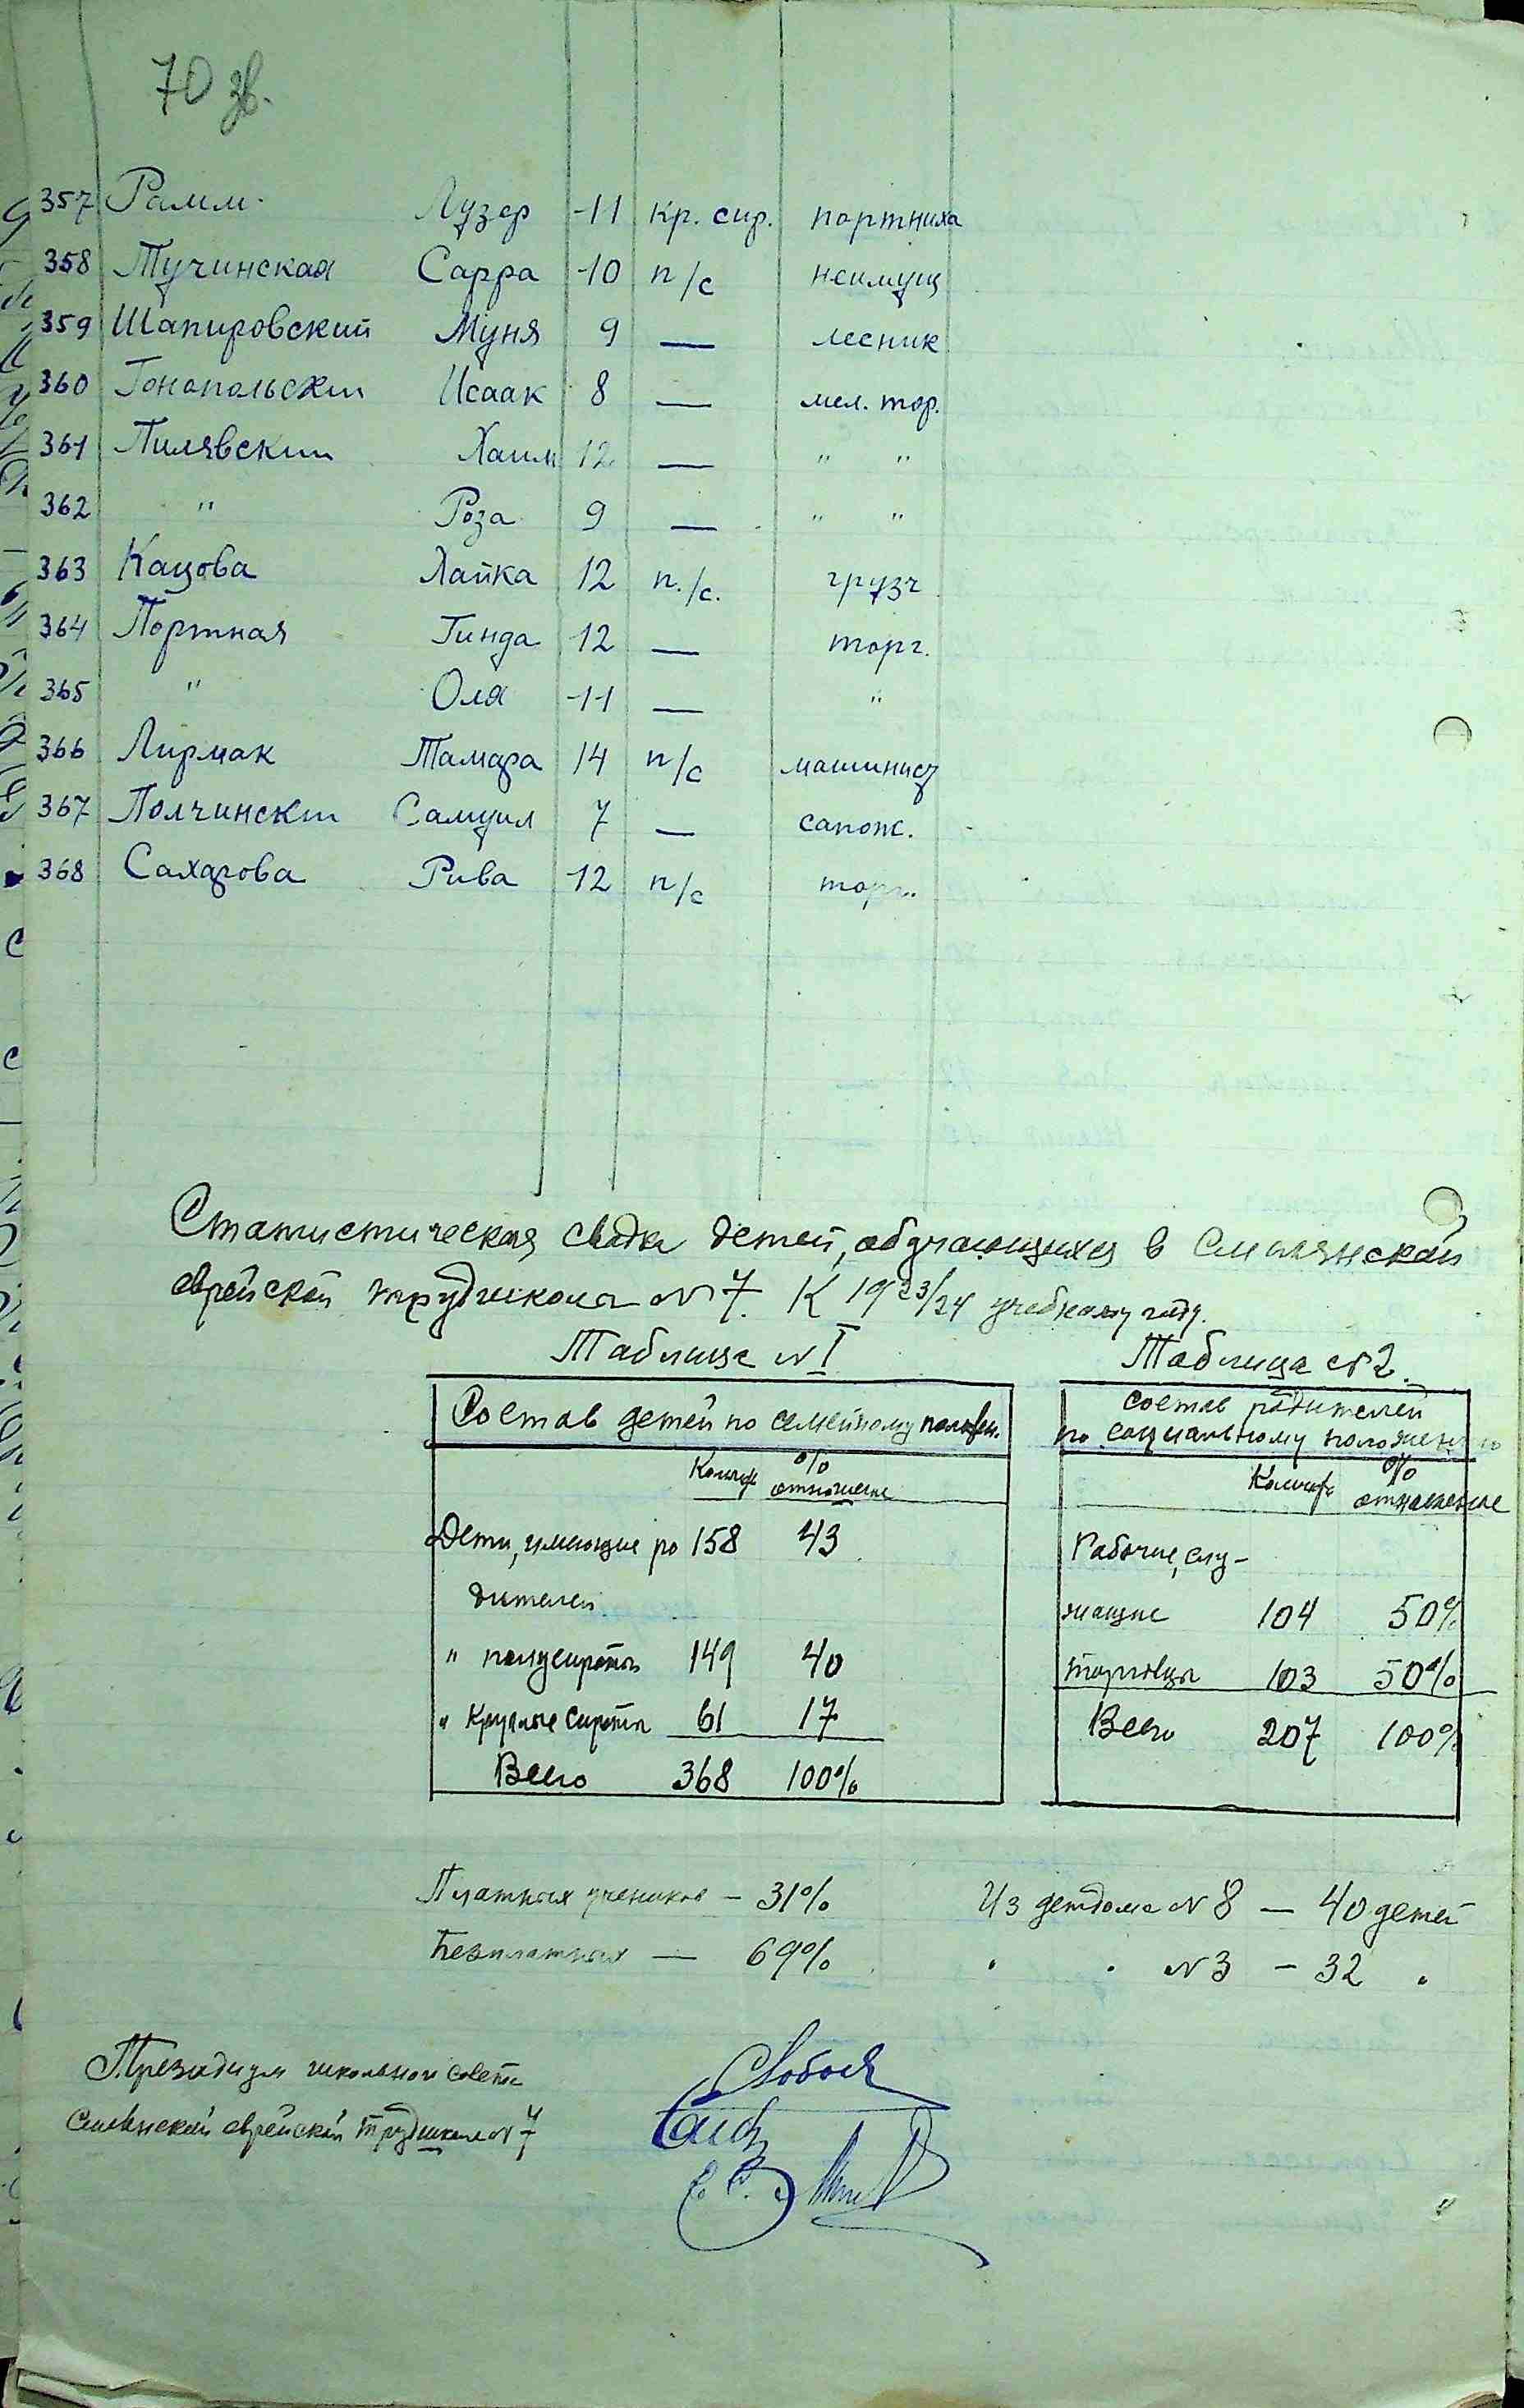 70 зв.
357 Рамм Лузер 11 кр. сир. портниха
358 Тучинская Сарра 10 п/с неимущ
359 Шапировский Муня 9 — лесник
360 Гонопольский Исаак 8 — мел. тор.
361 Пилявский Хаим 12 — " "
362 " Роза 9 — " "
363 Кацова Хайка 12 п./с. грузч
364 Портная Гинда 12 — торг.
365 " Оля 11 — "
366 Лирмак Тамара 14 п/с машинист
367 Полчинский Самуил 7 — сапож.
368 Сахарова Рива 12 п/с торг.
Статистическая сводка детей, обучающихся в Смелянской
еврейской трудшколе № 7. К 1923/24 учебному году.
Таблица № I Таблица № 2.
Состав детей по семейному полож.
Колич. % отношение
Дети, имеющие ро 158 43
дителей
" полусироты 149 40
" Круглые сироты 61 17
Всего 368 100%
Состав родителей
по социальному положению
Колич. % отношение
Рабочие, слу-
жащие 104 50%
торговцы 103 50%
Всего 207 100%
Платных учеников — 31% Из детдома № 8 — 40 детей
Безплатных — 69% " " № 3 — 32 "
Президиум школьного совета
Смелянской еврейской трудшколы № 7